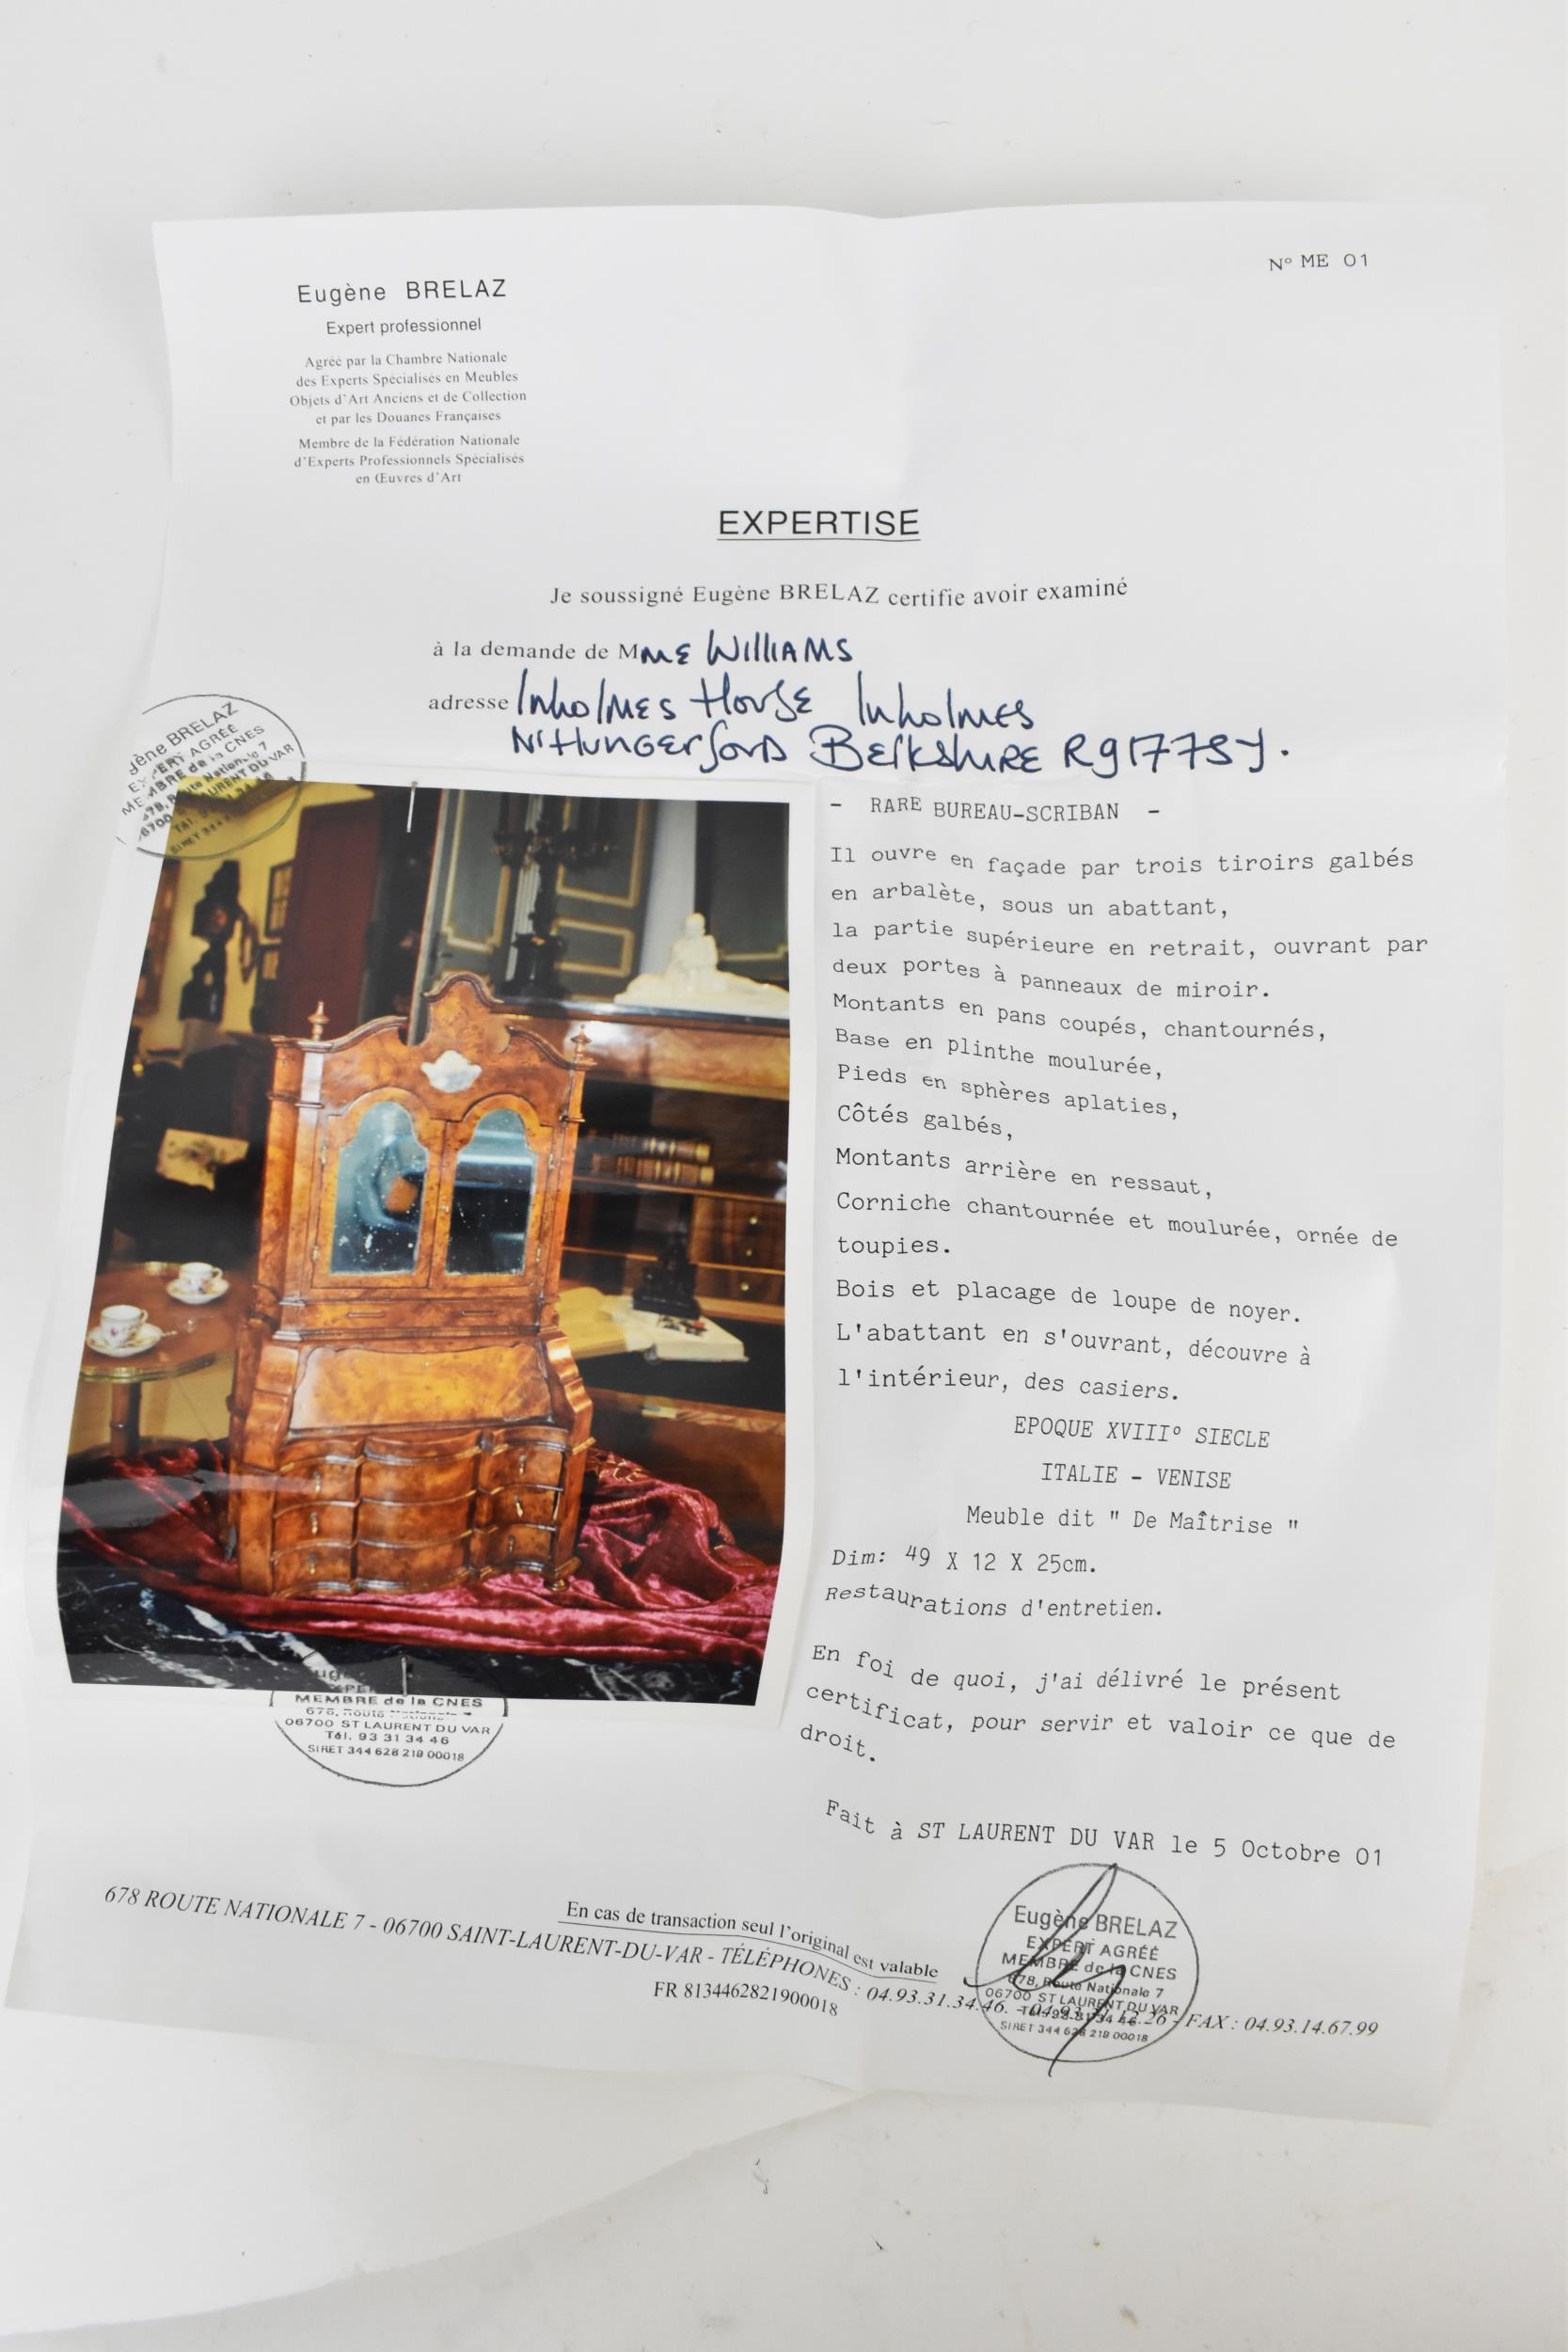 N° ME 01
Eugène BRELAZ
Expert professionnel
Agréé par la Chambre Nationale
des Experts Spécialisés en Meubles
Objets d'Art Anciens et de Collection
et par les Douanes Françaises
Membre de la Fédération Nationale
d'Experts Professionnels Spécialisés
en Œuvres d'Art
EXPERTISE
Je soussigné Eugène BRELAZ certifie avoir examiné
à la demande de MME WILLIAMS
adresse Inholmes House Inholmes
Nr Hungerford Berkshire RG17 7SY.
Eugène BRELAZ
EXPERT AGRÉÉ
MEMBRE de la CNES
678, Route Nationale 7
06700 ST LAURENT DU VAR
- RARE BUREAU-SCRIBAN -
Il ouvre en façade par trois tiroirs galbés
en arbalète, sous un abattant,
la partie supérieure en retrait, ouvrant par
deux portes à panneaux de miroir.
Montants en pans coupés, chantournés,
Base en plinthe moulurée,
Pieds en sphères aplaties,
Côtés galbés,
Montants arrière en ressaut,
Corniche chantournée et moulurée, ornée de
toupies.
Bois et placage de loupe de noyer.
L'abattant en s'ouvrant, découvre à
l'intérieur, des casiers.
EPOQUE XVIII° SIECLE
ITALIE - VENISE
Meuble dit " De Maîtrise "
Dim: 49 X 12 X 25cm.
Restaurations d'entretien.
En foi de quoi, j'ai délivré le présent
certificat, pour servir et valoir ce que de
droit.
MEMBRE de la CNES
678, Route
06700 ST LAURENT DU VAR
Tél. 93 31 34 46
SIRET 344 628 219 00018
Fait à ST LAURENT DU VAR le 5 Octobre 01
Eugène BRELAZ
EXPERT AGRÉÉ
MEMBRE de la CNES
678, Route Nationale 7
06700 ST LAURENT DU VAR
Tél. 93 31 34 46
SIRET 344 628 219 00018
En cas de transaction seul l'original est valable
678 ROUTE NATIONALE 7 - 06700 SAINT-LAURENT-DU-VAR - TÉLÉPHONES : 04.93.31.34.46. - FAX : 04.93.14.67.99
FR 8134462821900018